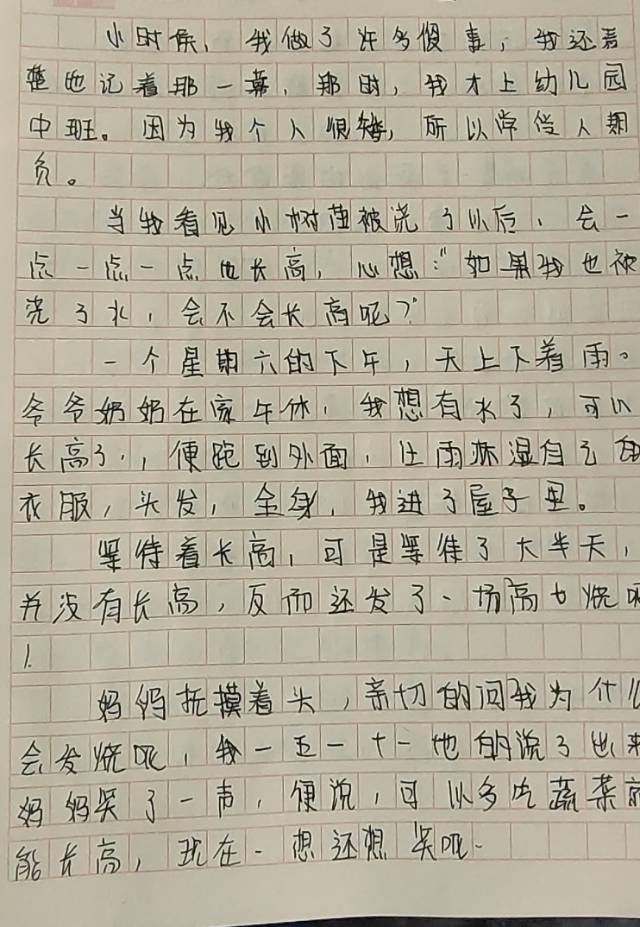 小时候，我做了许多傻事，我还清
楚地记着那一幕，那时，我才上幼儿园
中班。因为我个人很矮，所以常受人期
负。
当我看见小树苗被浇了以后，会一
点一点一点地长高，心想：“如果我也被
浇了水，会不会长高呢？”
一个星期六的下午，天上下着雨。
爷爷奶奶在家午休，我想有水了，可以
长高了，便跑到外面，让雨淋湿自己的
衣服，头发，全身，我进了屋子里。
等待着长高，可是等待了大半天，
并没有长高，反而还发了一场高烧
！
妈妈抚摸着头，亲切的问我为什
会发烧呢，我一五一十一地的说了出来
妈妈笑了一声，便说，可以多吃蔬菜
能长高，现在一想还想笑呢。